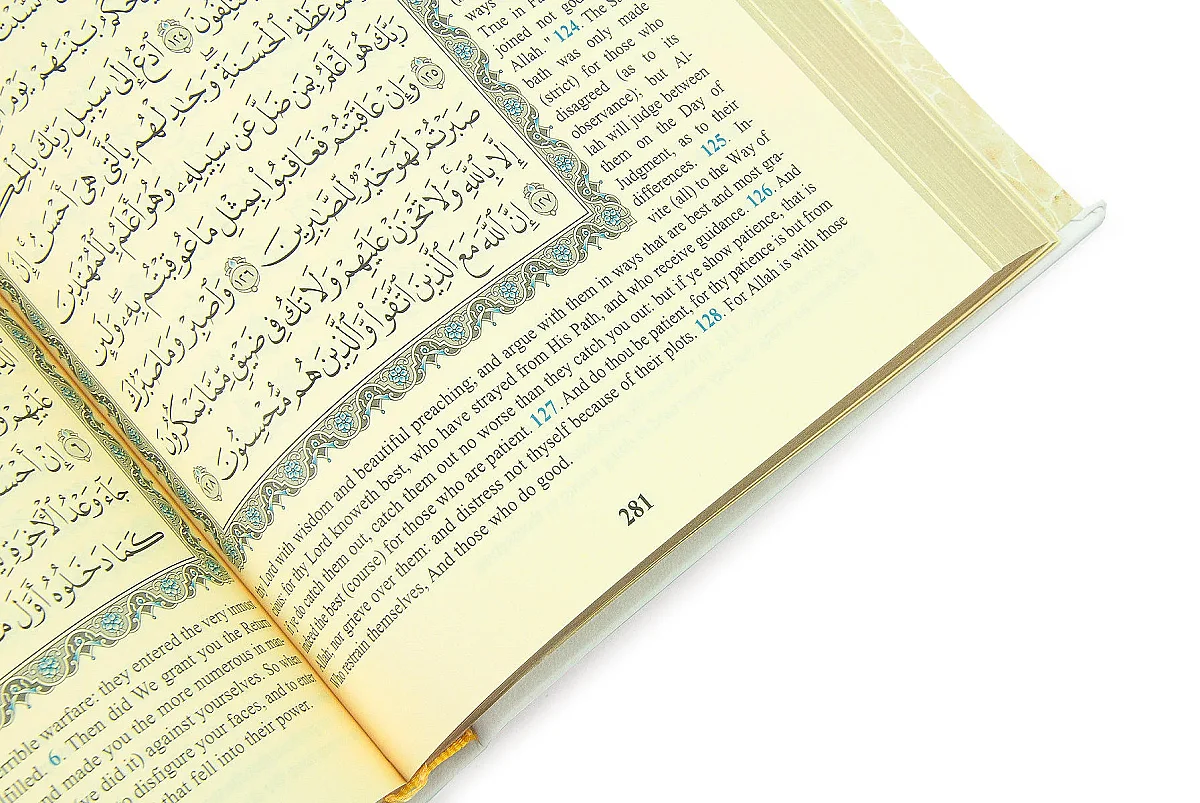 ٱدْعُ إِلَىٰ سَبِيلِ رَبِّكَ بِٱلْحِكْ
مَوْعِظَةِ ٱلْحَسَنَةِ وَجَٰدِلْهُم بِٱلَّتِى هِىَ أَحْسَنُ إِنَّ
رَبَّكَ هُوَ أَعْلَمُ بِمَن ضَلَّ عَن سَبِيلِهِۦ وَهُوَ أَعْلَمُ بِٱلْمُهْتَدِينَ
١٢٥ وَإِنْ عَاقَبْتُمْ فَعَاقِبُوا۟ بِمِثْلِ مَا عُوقِبْتُم بِهِۦ وَلَئِن
صَبَرْتُمْ لَهُوَ خَيْرٌ لِّلصَّٰبِرِينَ ١٢٦ وَٱصْبِرْ وَمَا صَبْرُكَ
إِلَّا بِٱللَّهِ وَلَا تَحْزَنْ عَلَيْهِمْ وَلَا تَكُ فِى ضَيْقٍ مِّمَّا يَمْكُرُونَ
١٢٧ إِنَّ ٱللَّهَ مَعَ ٱلَّذِينَ ٱتَّقَوا۟ وَّٱلَّذِينَ هُم مُّحْسِنُونَ ١٢٨
ways
True in Fa
joined not go
Allah." 124. The S
bath was only made
(strict) for those who
disagreed (as to its
observance); but Al-
lah will judge between
them on the Day of
Judgment, as to their
differences. 125. In-
vite (all) to the Way of
thy Lord with wisdom and beautiful preaching; and argue with them in ways that are best and most gra-
cious: for thy Lord knoweth best, who have strayed from His Path, and who receive guidance. 126. And
if ye do catch them out, catch them out no worse than they catch you out: but if ye show patience, that is
indeed the best (course) for those who are patient. 127. And do thou be patient, for thy patience is but from
Allah; nor grieve over them: and distress not thyself because of their plots. 128. For Allah is with those
Who restrain themselves, And those who do good.
281
إِنْ أَحْسَ
جَآءَ وَعْدُ ٱلْأٓخِرَةِ
كَمَا دَخَلُوهُ أَوَّلَ مَ
rrible warfare: they entered the very inmost
filled. 6. Then did We grant you the Return
nd made you the more numerous in man-
ye did it) against yourselves. So when
o disfigure your faces, and to enter
that fell into their power.